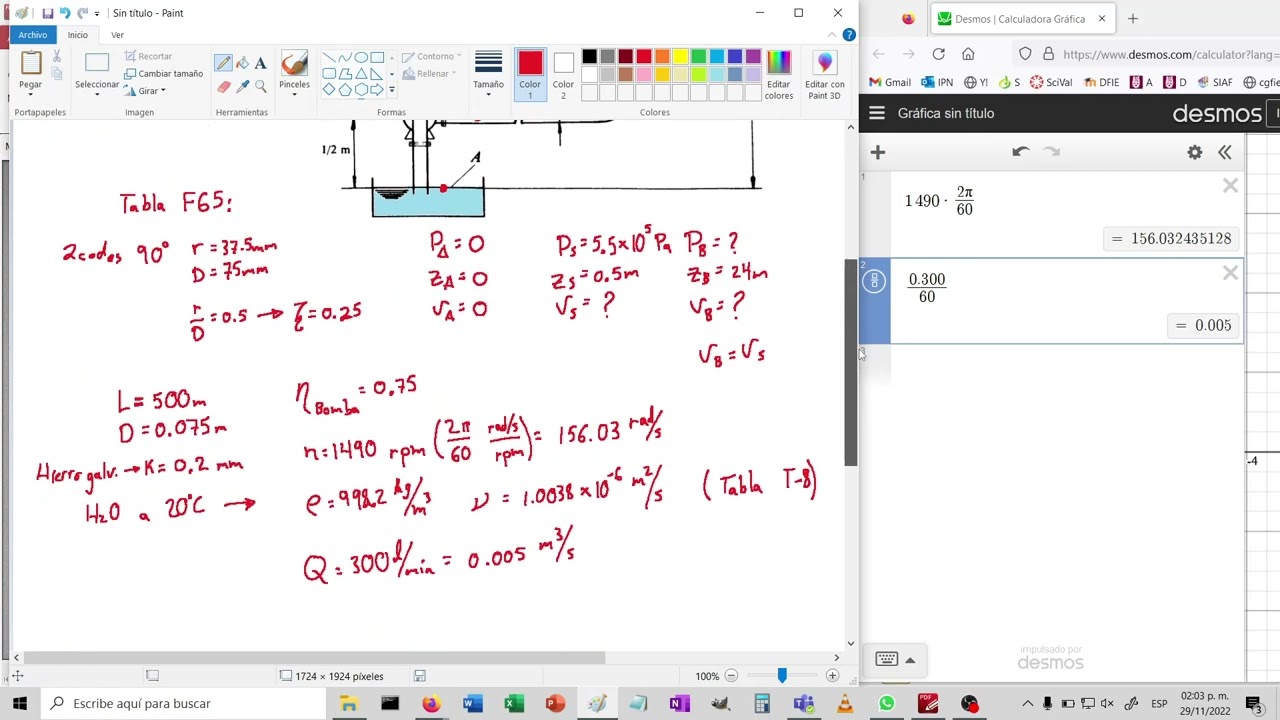 Sin título - Paint
Archivo Inicio Ver
Pegar
Seleccionar
Recortar
Cambiar tamaño
Girar
Pinceles
Contorno
Rellenar
Tamaño
Color 1
Color 2
Editar colores
Editar con Paint 3D
Portapapeles Imagen Herramientas Formas Colores
1/2 m
A
Tabla F65:
2 codos 90° r = 37.5mm
D = 75mm
r/D = 0.5 → ζ = 0.25
P_A = 0 P_S = 5.5×10⁵ Pa P_B = ?
z_A = 0 z_S = 0.5m z_B = 24m
v_A = 0 v_S = ? v_B = ?
v_B = v_S
L = 500m η_Bomba = 0.75
D = 0.075m
n = 1490 rpm (2π/60 rad/s/rpm) = 156.03 rad/s
Hierro galv. → K = 0.2 mm
H₂O a 20°C → ρ = 998.2 kg/m³ ν = 1.0038×10⁻⁶ m²/s (Tabla T-8)
Q = 300 l/min = 0.005 m³/s
1724 × 1924 píxeles
100%
Desmos | Calculadora Gráfica
https://www.desmos.com/calculator?lang=
Gmail IPN Y! S SciVal DEFIE
Gráfica sin título
desmos
1
1490 · 2π/60
= 156.032435128
2
0.300/60
= 0.005
3
-4
impulsado por
desmos
Escribe aquí para buscar
ESP
02:03 p. m.
29/11/2022
3